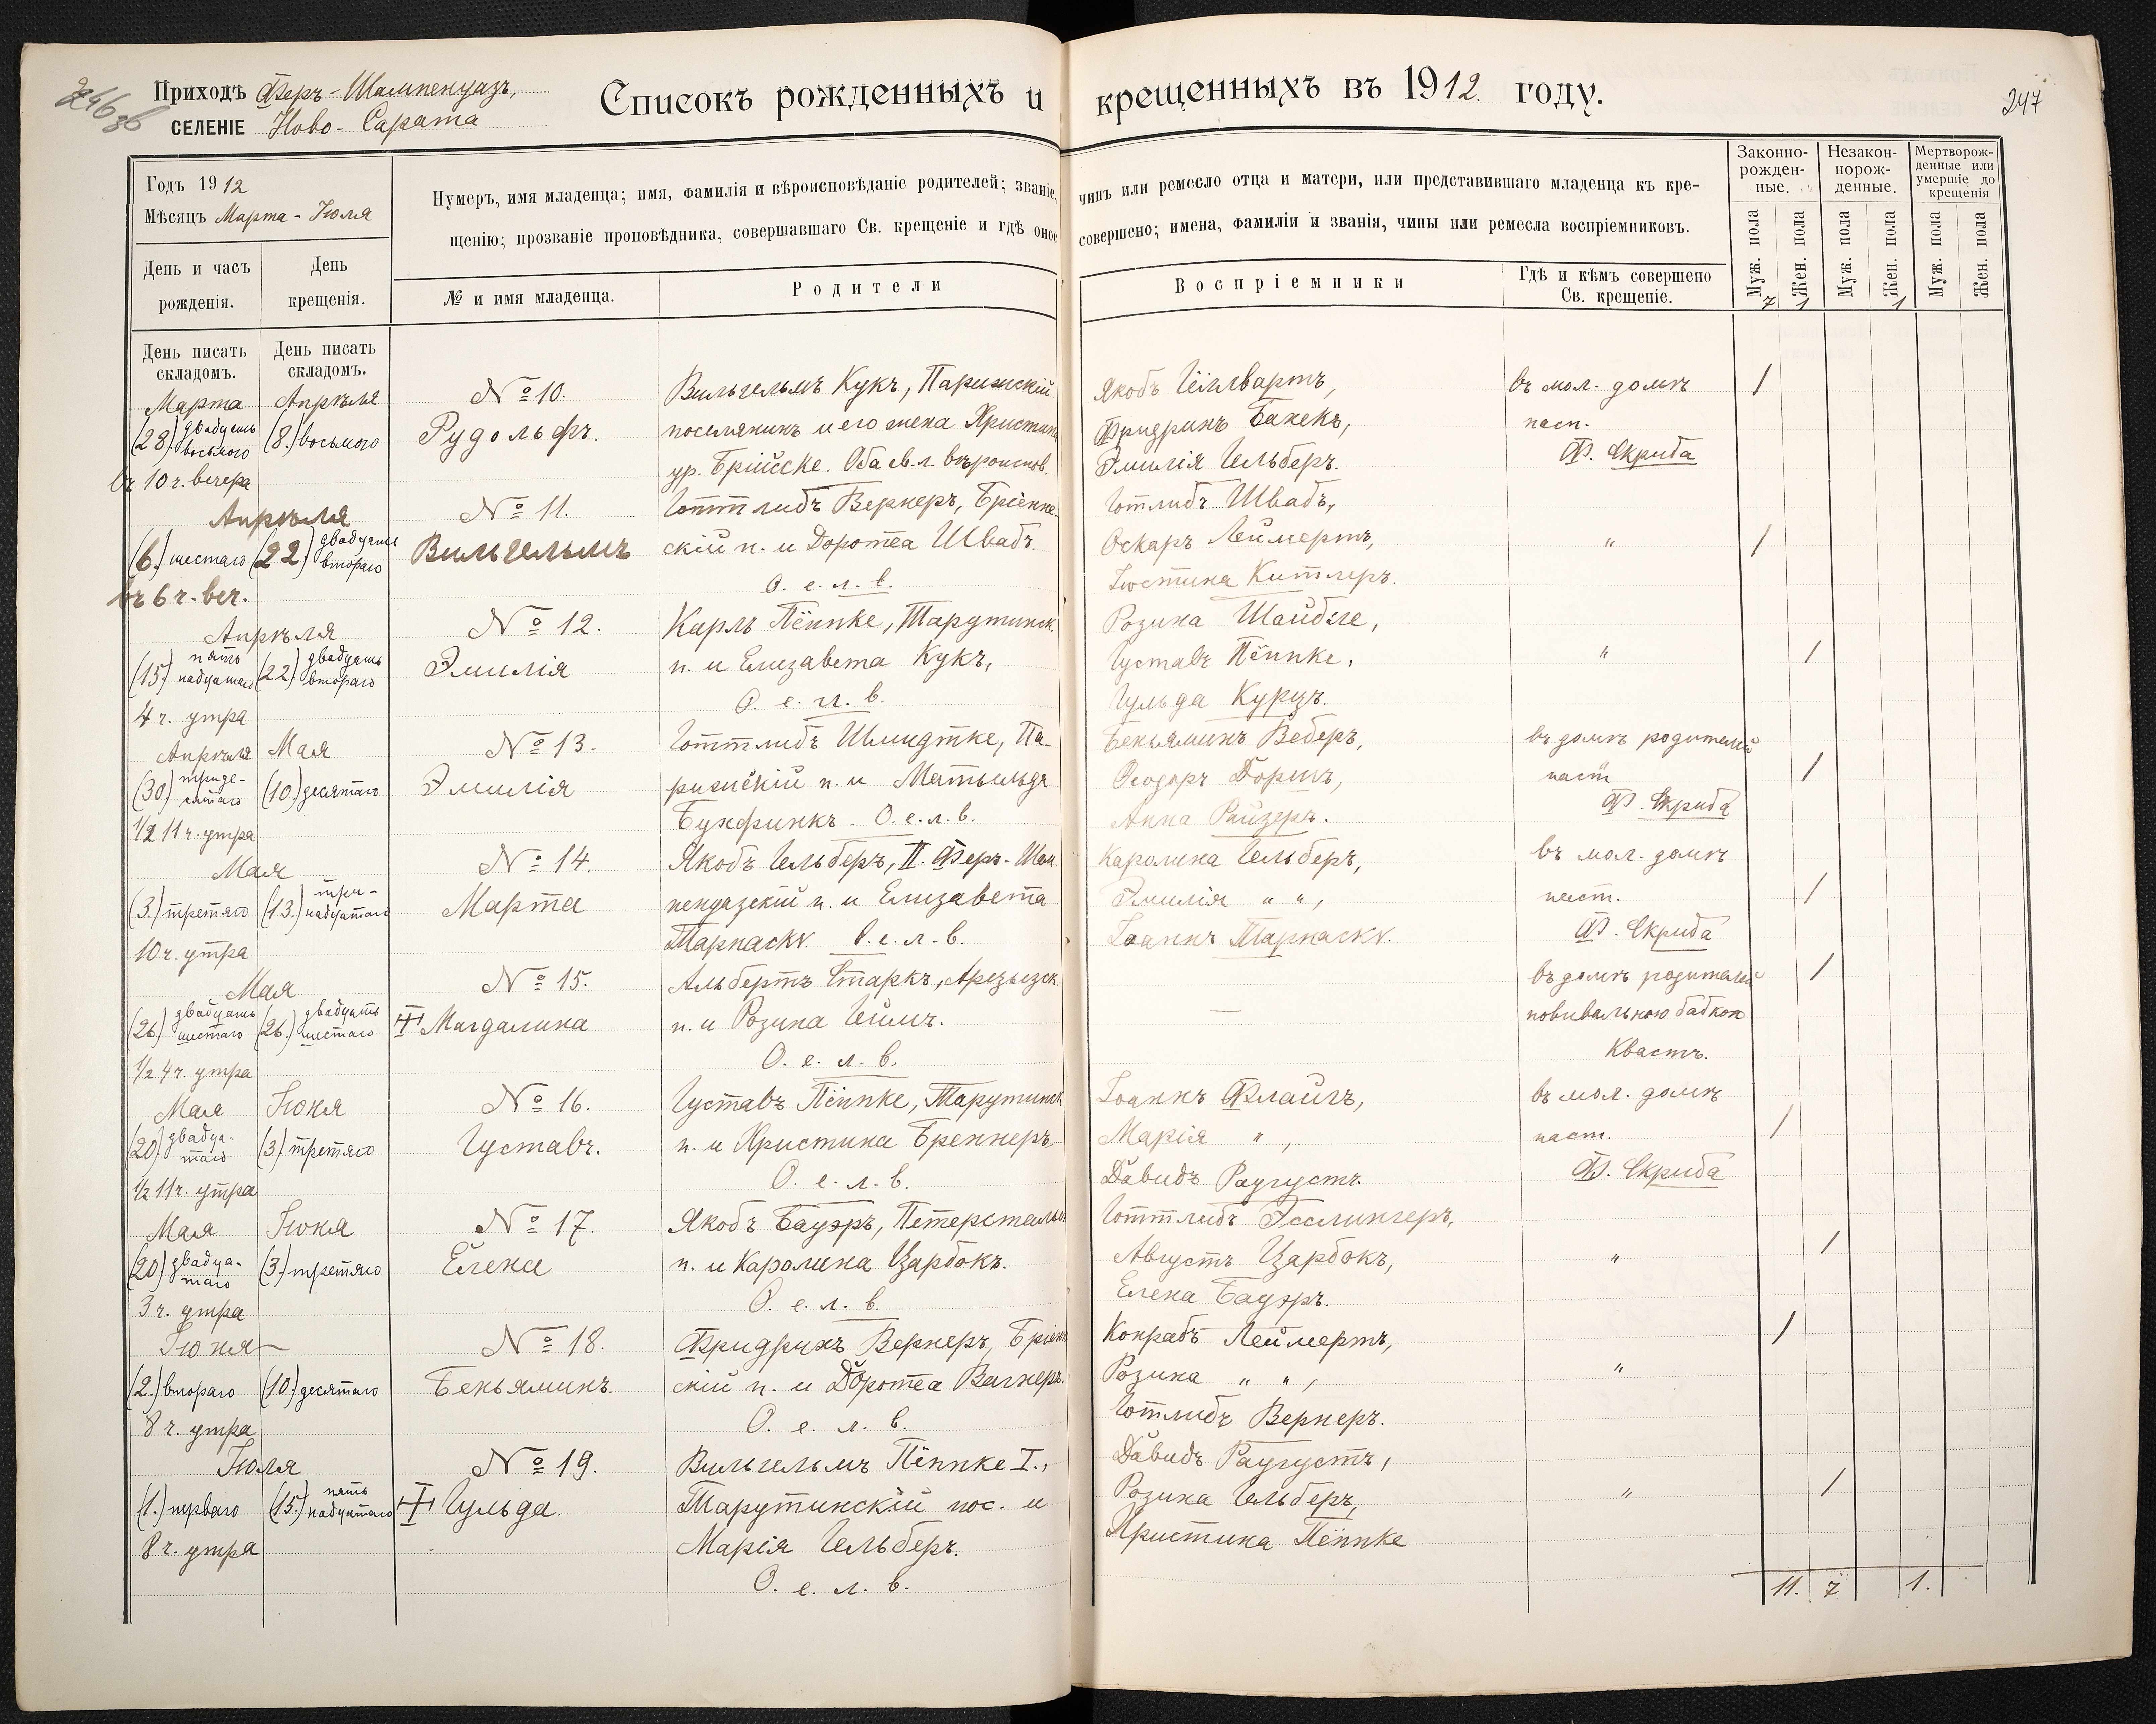 246 об
Приходъ Феръ-Шампенуазъ,
СЕЛЕНІЕ Ново-Сарата
Списокъ рожденныхъ и крещенныхъ въ 1912 году.
247
Годъ 1912
Мѣсяцъ Марта - Іюля
День и часъ рожденія.
День крещенія.
Нумеръ, имя младенца; имя, фамилія и вѣроисповѣданіе родителей; званіе, чинъ или ремесло отца и матери, или представившаго младенца къ кре-
щенію; прозваніе проповѣдника, совершавшаго Св. крещеніе и гдѣ оное совершено; имена, фамиліи и званія, чины или ремесла воспріемниковъ.
№ и имя младенца.
Родители
Воспріемники
Гдѣ и кѣмъ совершено
Св. крещеніе.
Законно-
рожден-
ные.
Незакон-
норож-
денные.
Мертворож-
денные или
умершіе до
крещенія
Муж. пола Жен. пола Муж. пола Жен. пола Муж. пола Жен. пола
7 1 1
День писать складомъ.
День писать складомъ.
Марта Апрѣля
(28) двадцать восьмого (8.) восьмого
въ 10 ч. вечера
№ 10.
Рудольфъ.
Вильгельмъ Кукъ, Парижскій
поселянинъ и его жена Христина
ур. Брійске. Оба ев. л. вѣроиспов.
Якобъ Гейлвартъ,
Фридрихъ Бахекъ,
Эмилія Гельберъ.
въ мол. домѣ
паст.
Ф. Скриба
/
Апрѣля
(6.) шестаго (22.) двадцать втораго
въ 6 ч. веч.
№ 11.
Вильгельмъ
Готтлибъ Вернеръ, Бріенне-
скій п. и Доротеа Швабъ.
О. е. л. в.
Готлибъ Швабъ,
Оскаръ Леймертъ,
Іюстина Китлеръ.
"
/
Апрѣля
(15) пятьнадцатаго (22) двадцать втораго
4 ч. утра
№ 12.
Эмилія
Карлъ Пёппке, Тарутинск.
п. и Елизавета Кукъ,
О. е. л. в.
Розина Шайбле,
Густавъ Пёппке,
Гульда Курцъ.
"
/
Апрѣля Мая
(30) тридесятаго (10.) десятаго
1/2 11 ч. утра
№ 13.
Эмилія
Готтлибъ Шмидтке, Па-
рижскій п. и Матьильда
Бухфинкъ. О. е. л. в.
Беньяминъ Веберъ,
Ѳеодоръ Доршъ,
Анна Райзеръ.
въ домѣ родителей
паст
Ф. Скриба
/
Мая
(3.) третяго (13.) тринадцатаго
10 ч. утра
№ 14.
Марта
Якобъ Гельберъ, II. Феръ-Шам
пенуазскій п. и Елизавета
Тарнаску. О. е. л. в.
Каролина Гельберъ,
Эмилія " ",
Іоаннъ Тарнаску.
въ мол. домѣ
паст.
Ф. Скриба
/
Мая
(26.) двадцать шестаго (26.) двадцать шестаго
1/2 4 ч. утра
№ 15.
Магдалина
Альбертъ Старкъ, Арзызск.
п. и Розина Геймъ.
О. е. л. в.
—
въ домѣ родителей
повивальною бабкою
Квастъ.
/
Мая Іюня
(20) двадцатаго (3.) третяго
1/2 11 ч. утра
№ 16.
Густавъ.
Густавъ Пёппке, Тарутинск
п. и Христина Греннеръ
О. е. л. в.
Іоаннъ Флайгъ,
Марія ",
Давидъ Раугустъ.
въ мол. домѣ
паст.
Ф. Скриба
/
Мая Іюня
(20) двадцатаго (3.) третяго
3 ч. утра
№ 17.
Елена
Якобъ Бауэръ, Петерстальск
п. и Каролина Царбокъ.
О. е. л. в.
Готтлибъ Эсслингеръ,
Августъ Царбокъ,
Елена Бауэръ.
"
/
Іюня
(2.) втораго (10.) десятаго
8 ч. утра
№ 18.
Беньяминъ.
Фридрихъ Вернеръ, Бріенн
скій п. и Доротеа Вагнеръ.
О. е. л. в.
Конрадъ Леймертъ,
Розина " ",
Готлибъ Вернеръ.
"
/
Іюля
(1.) перваго (15.) пятьнадцатаго
8 ч. утра
№ 19.
Гульда.
Вильгельмъ Пёппке I.,
Тарутинскій пос. и
Марія Гельберъ.
О. е. л. в.
Давидъ Раугустъ,
Розина Гельберъ,
Христина Пёппке
"
/
11. 7 1.